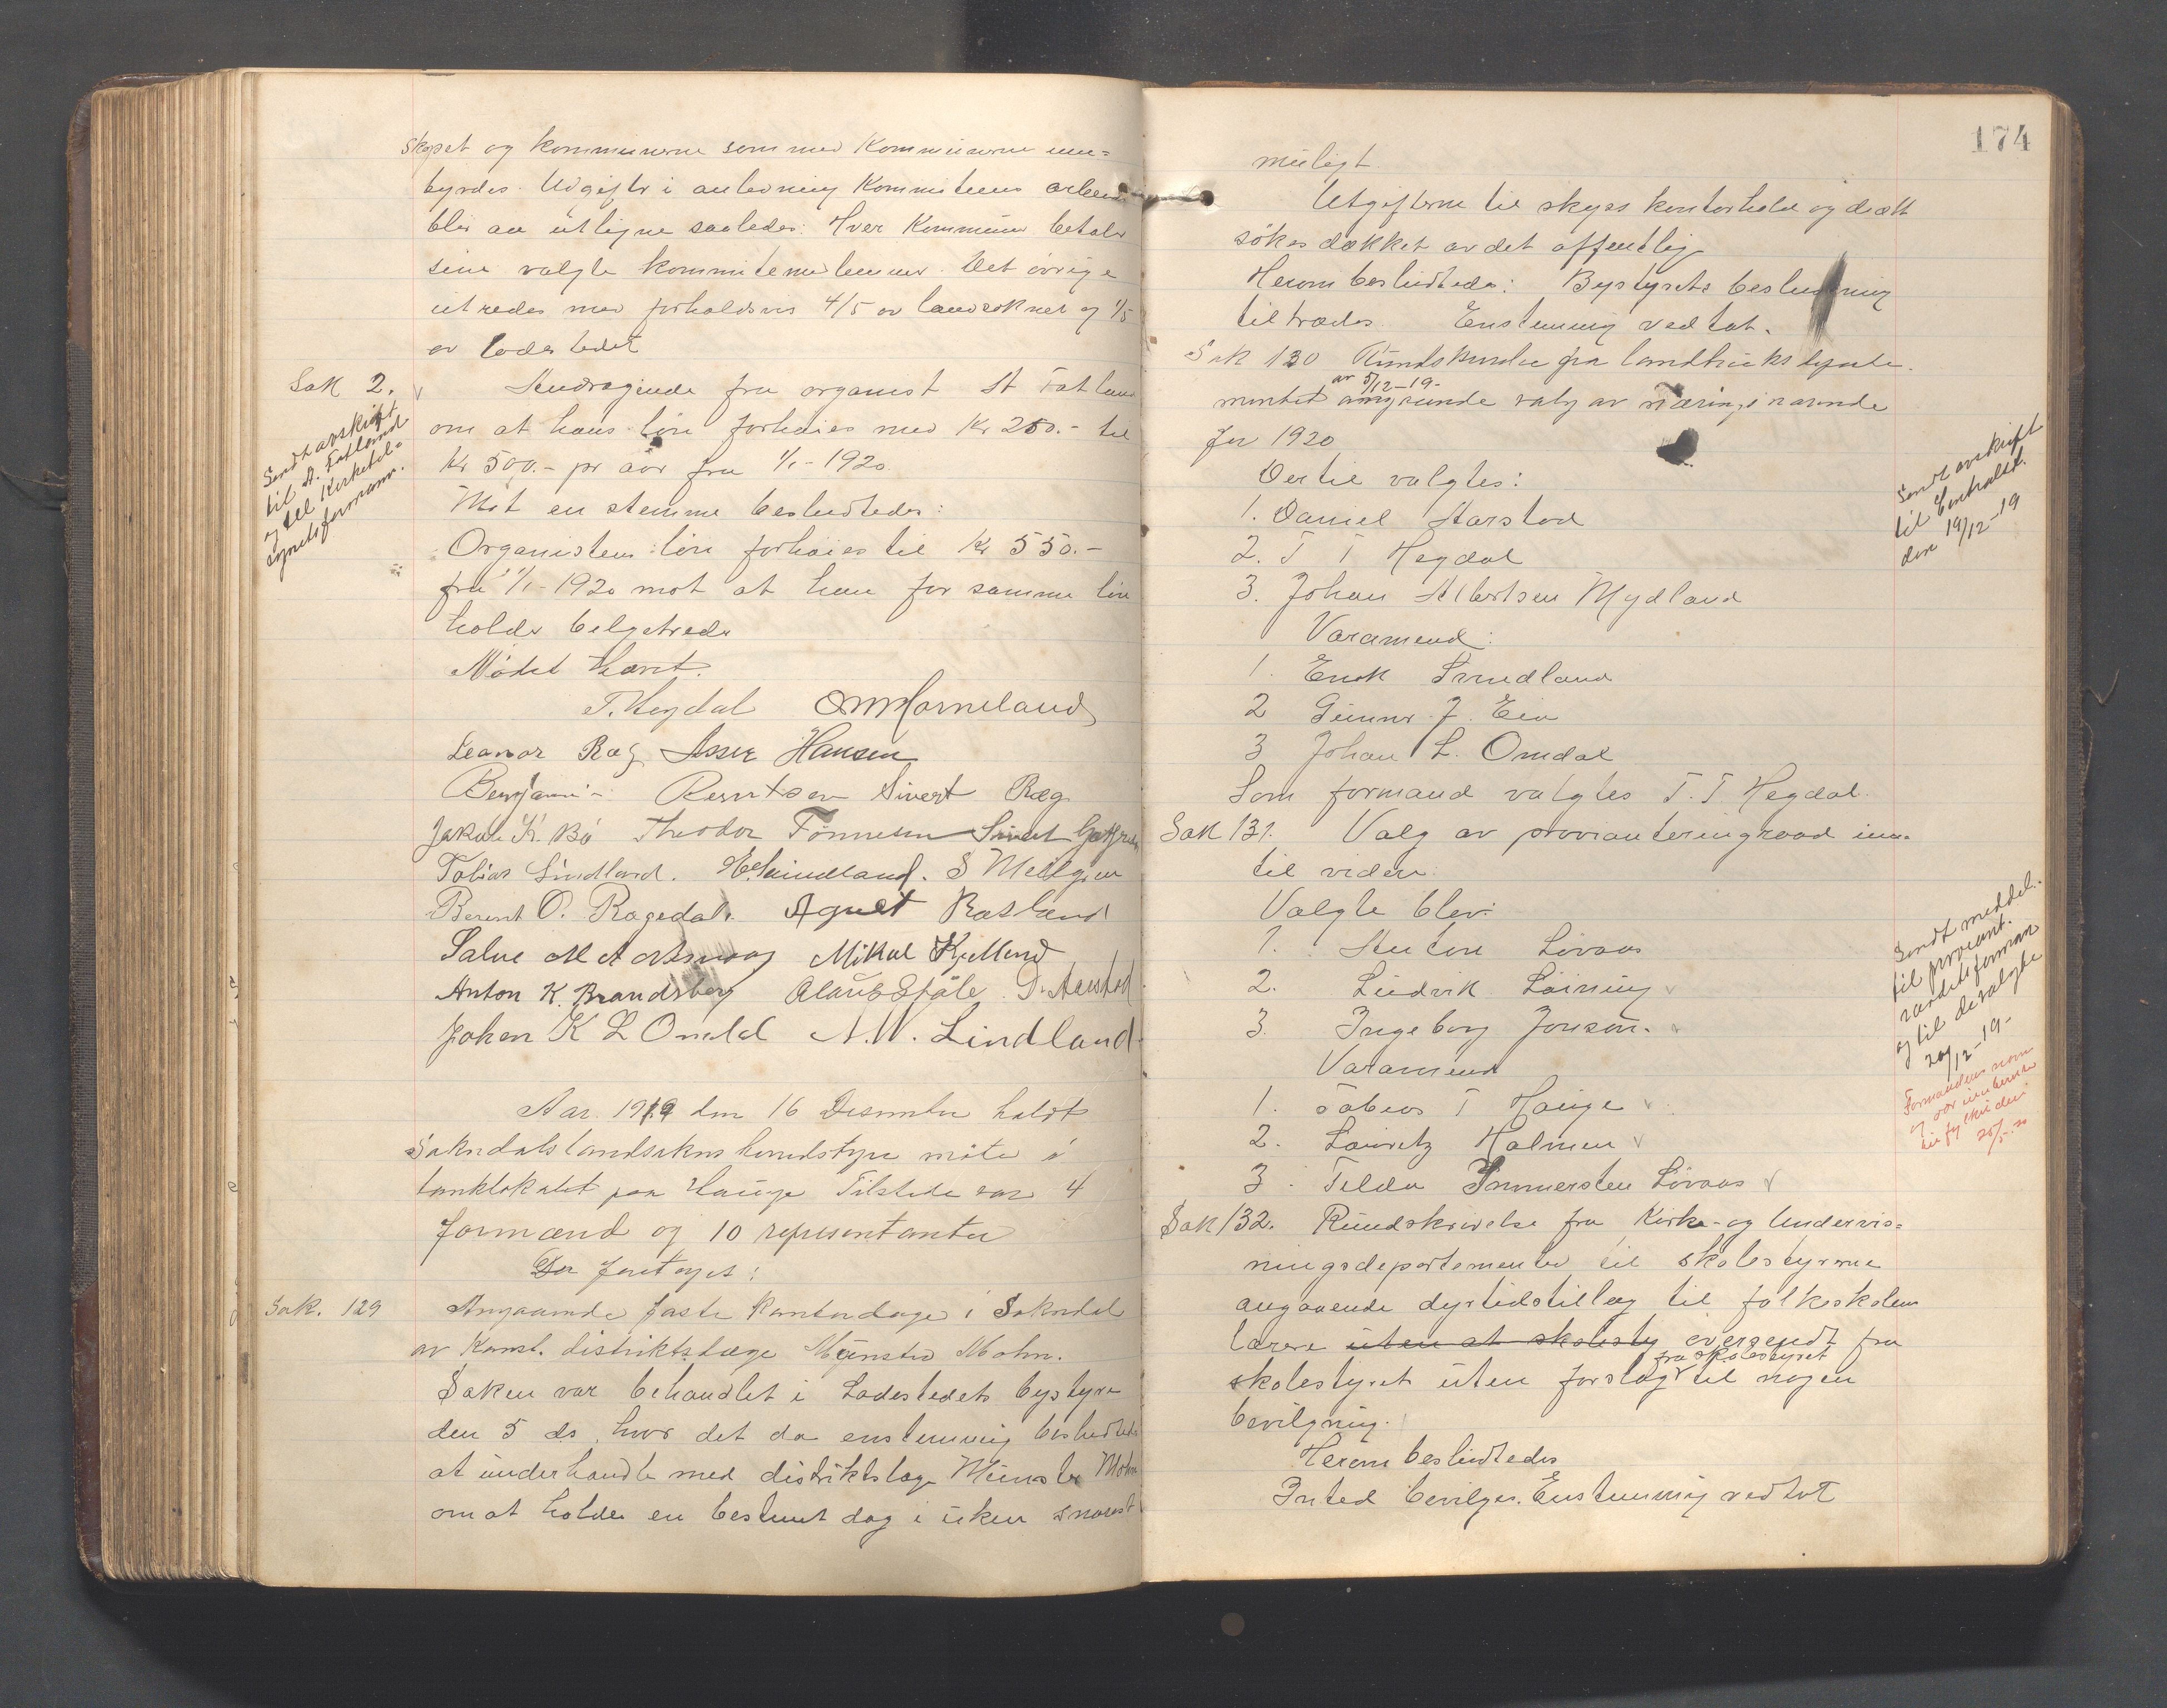 skapet og kommunerne som med Kommunerne inn=
byrdes. Udgifter i anledning Kommiteens arbeide
blir aa utligne saaledes: Hver Kommune betaler
sine valgte kommitemedlemmer. Det øvrige
utredes med forholdsvis 4/5 av landsoknet og 1/5
av ladestedet
Sak 2. Andragende fra organist A Fatland
om at hans løn forhøies med Kr 250.- til
Kr 500.- pr aar fra 1/1-1920.
Mot en stemme besluttedes:
Organistens løn forhøies til Kr 550.-
fra 1/1-1920 mot at han for samme løn
holder belgetreder
Mødet hævet.
Sendt avskrift
til A. Fatland
og til Kirketil=
synets formann.
T. Hegdal OM Horneland
Leanor Ræg Asser Hansen
Benjamin Berntsen Sivert Ræg
Jakob K. Bö Theodor Tønnesen Sivert
Tobias Lindland. H Lindland. S Mellgren
Berent O. Ragedal. Agnet Rosland
Salve Mikal Kjelland
Anton K. Brandsberg Olaus Stöle D. Aarstad
Johan K L Omdal A.W. Lindland.
Aar 1919 den 16 Desember holdt
Sokndals landsokns herredstyre møte i
banklokalet paa Hauge Tilstede var 4
formænd og 10 representanter
Der foretoges:
Sak. 129 Angaaende faste kontordage i Sokndal
av Konst. distriktslæge Münster Mohn.
Saken var behandlet i Ladestedets bystyre
den 5 ds, hvor det da enstemmig besluttedes
at underhandle med distriktslæge Münster Mohn
om at holde en bestemt dag i uken snarest
174
muligt.
Utgifterne til skyss kontorhold og diæt
søkes dækket av det offentlige
Herom besluttedes: Bystyrets beslutning
tiltrædes. Enstemmig vedtat.
Sak 130 Rundskrivelse fra landbruksdeparte=
av 5/12-19-
mentet angaaende valg av næringsnævnde
for 1920
Dertil valgtes:
1. Daniel Aarstad
2. T T Hegdal
3. Johan Albertsen Mydland
Varamend:
1. Enok Frudland
2 Gunnar J. Eia
3 Johan L. Omdal
Som formand valgtes T.T. Hegdal.
Sendt avskrift
til Centralst.
den 19/12-19
Sak 131. Valg av provianteringraad inn=
til videre.
Valgte blev:
1. Anton Lövaas
2. Ludvik Løining
3. Ingeborg Jonson.
Varamend
1. Tobias T Hauge
2. Lauritz Holmen
3. Tilda Immersten Lövaas
Sendt meddel.
til proviant.
raadets forman
og til de valgte
20/12-19-
Formandens navn
og
25/5-20
Sak 132. Rundskrivelse fra Kirke- og Undervis=
ningsdepartementet til skolestyrerne
angaaende dyrtidstillæg til folkeskolens
lærere uten at skolesty oversendt fra
fra skolestyret
skolestyret uten forslag til nogen
bevilgning.
Herom besluttedes
Inted bevilges. Enstemmig vedtat